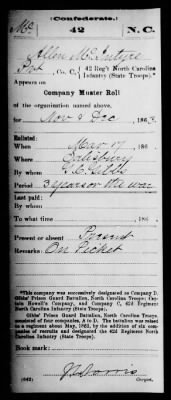 (Confederate.)
Mc 42 N.C.
Allen McIntyre
Pvt, Co. C, 42 Reg't North Carolina
Infantry (State Troops).*
Appears on
Company Muster Roll
of the organization named above,
for Nov & Dec, 1863
Enlisted:
When Mar 17, 186
Where Salisbury
By whom G.C. Gibbs
Period 3 years or the war
Last paid:
By whom
To what time, 186
Present or absent Present
Remarks: On Picket
*This company was successively designated as Company D,
Gibbs' Prison Guard Battalion, North Carolina Troops; Captain
Howell's Company, and Company C, 42d Regiment
North Carolina Infantry (State Troops).
Gibbs' Prison Guard Battalion, North Carolina Troops,
consisted of four companies, A to D. The battalion was raised
to a regiment about May, 1862, by the addition of six companies
of recruits and designated the 42d Regiment North
Carolina Infantry (State Troops).
Book mark:
(642)
Copyist.